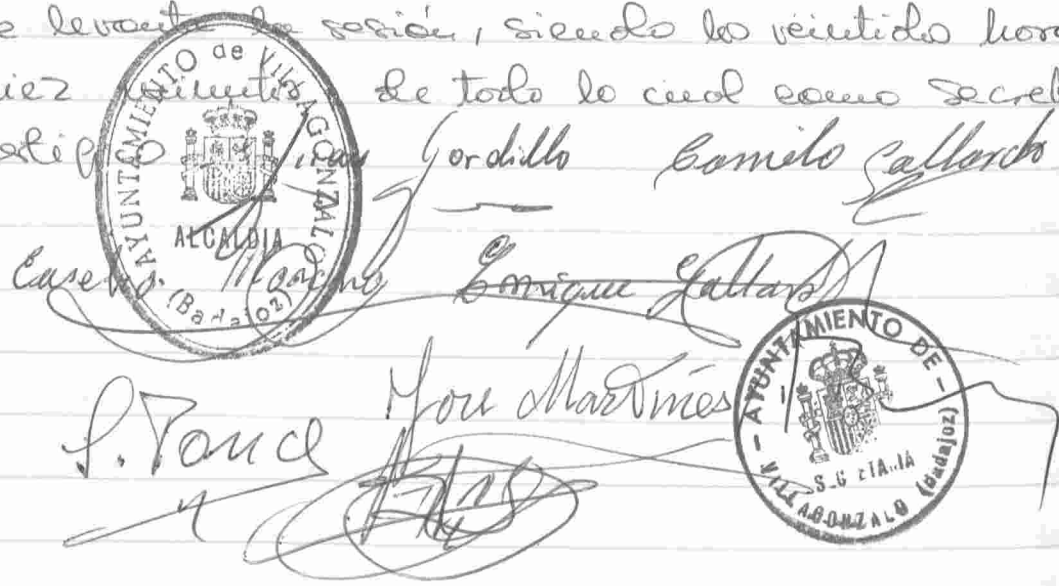 e levanta la sesión, siendo las veintidos hora
iez minutos de todo lo cual como Secret
Juan Gordillo Camilo Gallardo
AYUNTAMIENTO de VILLAGONZALO
ALCALDIA
(Badajoz)
Casebo Moreno Enrique Gallardo
P. Ponce José Martines
AYUNTAMIENTO DE
VILLAGONZALO (Badajoz)